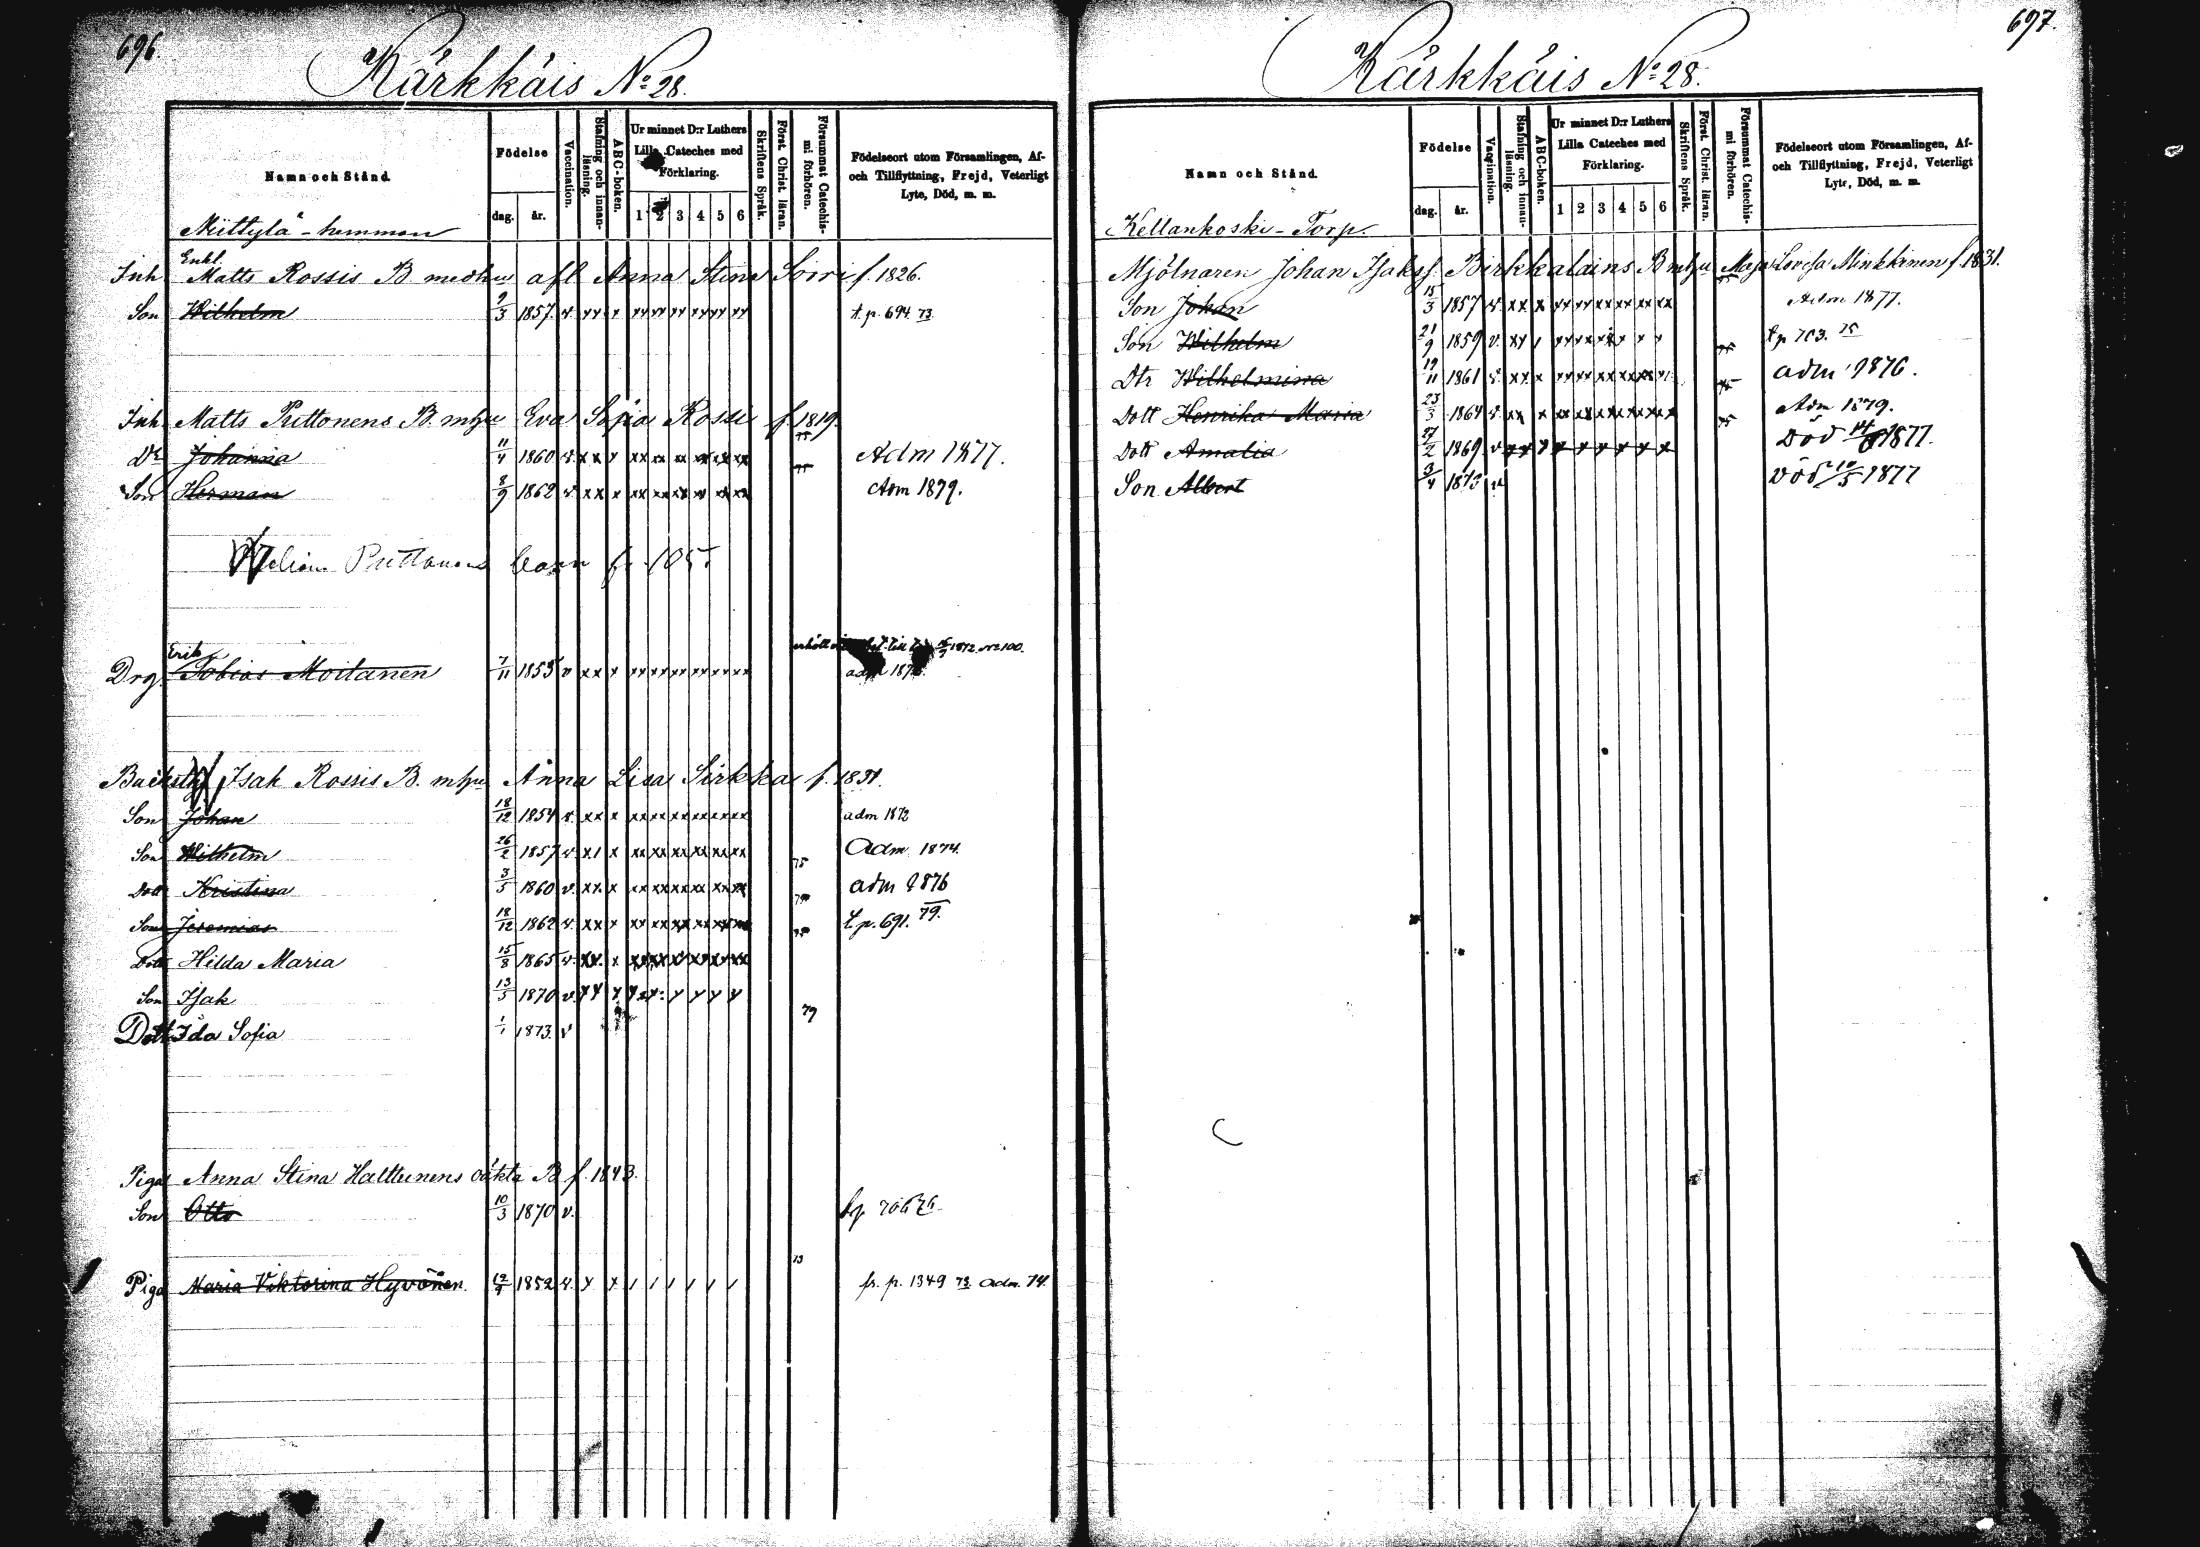 696.
Kärkkäis No 28.
Namn och Stånd.
Födelse
dag. år.
Vaccination.
Stafning och innan-läsning.
ABC-boken.
Ur minnet D:r Luthers
Lilla Cateches med
Förklaring.
1 2 3 4 5 6
Skriftens Språk.
Först. Christ. läran.
Försummat Catechis-mi förhören.
Födelseort utom Församlingen, Af-
och Tillflyttning, Frejd, Veterligt
Lyte, Död, m. m.
Mittylä-hemman
Enkl.
Inh. Matts Rossis B med hu afl Anna Stina Sorri f. 1826.
Son Wilhelm 9/3 1857. v. xx x xx xx xx xx xx xx t. p. 694. 73
Inh. Matts Puttonens B. mhu Eva Sofia Rossi f. 1819.
Dr Johanna 11/4 1860 v. xx x xx xx xx xx xx xx 75 Adm 1877.
Son Herman 8/9 1862 v. xx x xx xx xx xx xx xx 75 Adm 1879.
Puttonens barn fr. 105
Erik
Drg. Tobias Moilanen 7/11 1853 v xx x xx xx xx xx xx xx 1872. No 100.
adm 187
Backsth Isak Rossis B. mhu Anna Lisa Sirkka f. 1831.
Son Johan 18/12 1854 v. xx x xx xx xx xx xx xx adm 1872
Son Wilhelm 26/2 1857 v. x1 x xx xx xx xx xx xx 75 Adm 1874.
Dott Kristina 3/5 1860 v. xx x xx xx xx xx xx xx 79 adm 1876
Son Jeremias 18/12 1862 v. xx x xx xx xx xx xx xx 75 t. p. 691. 79.
Dott Hilda Maria 15/8 1865 v. xx x xx xx xx xx xx xx
Son Isak 13/5 1870 v. xx x x x x x x x
79
Dott Ida Sofia 1/1 1873. v
Piga Anna Stina Halttunens oäkta B f. 1843.
Son Otto 10/3 1870 v. tp 706 76
13
Piga Maria Viktorina Hyvönen. 12/4 1852 v. x x / / / / / / fr. p. 1349 73 adm. 74.
697.
Kärkkäis No 28.
Namn och Stånd.
Födelse
dag. år.
Vaccination.
Stafning och innan-läsning.
ABC-boken.
Ur minnet D:r Luthers
Lilla Cateches med
Förklaring.
1 2 3 4 5 6
Skriftens Språk.
Först. Christ. läran.
Försummat Catechis-mi förhören.
Födelseort utom Församlingen, Af-
och Tillflyttning, Frejd, Veterligt
Lyte, Död, m. m.
Kellankoski-Torp.
Mjölnaren Johan Isakss. Birkkalains B mhu Maja Lovisa Minkkinen f. 1831.
Son Johan 15/3 1857 v. xx x xx xx xx xx xx xx Adm 1877.
Son Wilhelm 21/9 1859 v. xx / xx xx xx x x x 75 tp 703. 75
Dtr Wilhelmina 19/11 1861 v. xx x xx xx xx xx xx x 75 adm 1876.
Dott Henrika Maria 23/3 1864 v. xx x xx xx xx xx xx xx 75 Adm 1879.
Dott Amalia 27/2 1869 v xx x x x x x x x Död 14/8 1877.
Son Albert 3/4 1873 v Död 10/5 1877